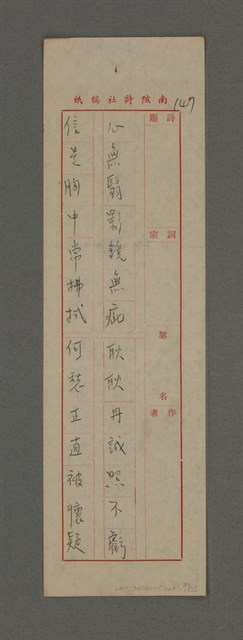 南陔詩社稿紙
147
詩題
詞宗
第 名
作者
心無翳影鏡無疵 耿耿丹誠照不虧
信是胸中常拂拭 何愁正直被懷疑